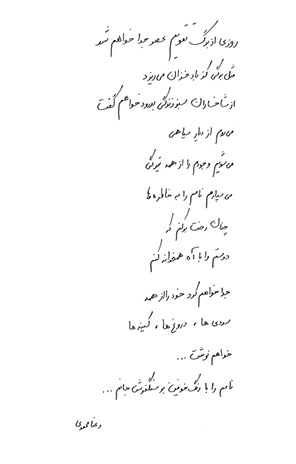 روزی از برگ تقویم عصر جدا خواهم شد
مثل برگی کز باد خزان می‌ریزد
از شاخساران سبز زندگی بدرود خواهم گفت
می‌روم از دیار سیاهی
می‌شویم وجودم را از همه تیرگی
می‌سپارم نامم را به خاطره‌ها
چنان رخت برکنم که
دوستم را با آه همخانه کنم
جدا خواهم کرد خود را از همه
سردی‌ها، دروغ‌ها، کینه‌ها
خواهم نوشت ...
نامم را با رنگ خونین بر سنگفرش جانم ...